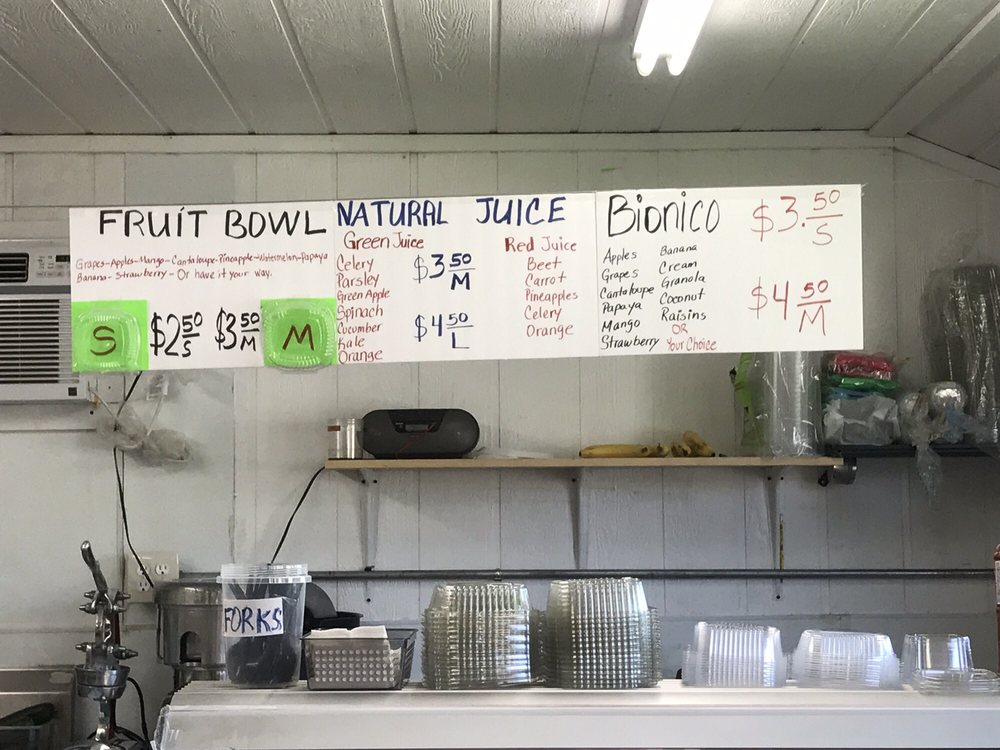 FRUIT BOWL
Grapes-Apples-Mango-Cantaloupe-Pineapple-Watermelon-Papaya
Banana-Strawberry-Or have it your way.
S
$2 50 S
$3 50 M
M
NATURAL JUICE
Green Juice
Celery
Parsley
Green Apple
Spinach
Cucumber
Kale
Orange
$3 50 M
$4 50 L
Red Juice
Beet
Carrot
Pineapples
Celery
Orange
Bionico
Apples
Grapes
Cantaloupe
Papaya
Mango
Strawberry
Banana
Cream
Granola
Coconut
Raisins
OR
Your Choice
$3.50 S
$4 50 M
FORKS